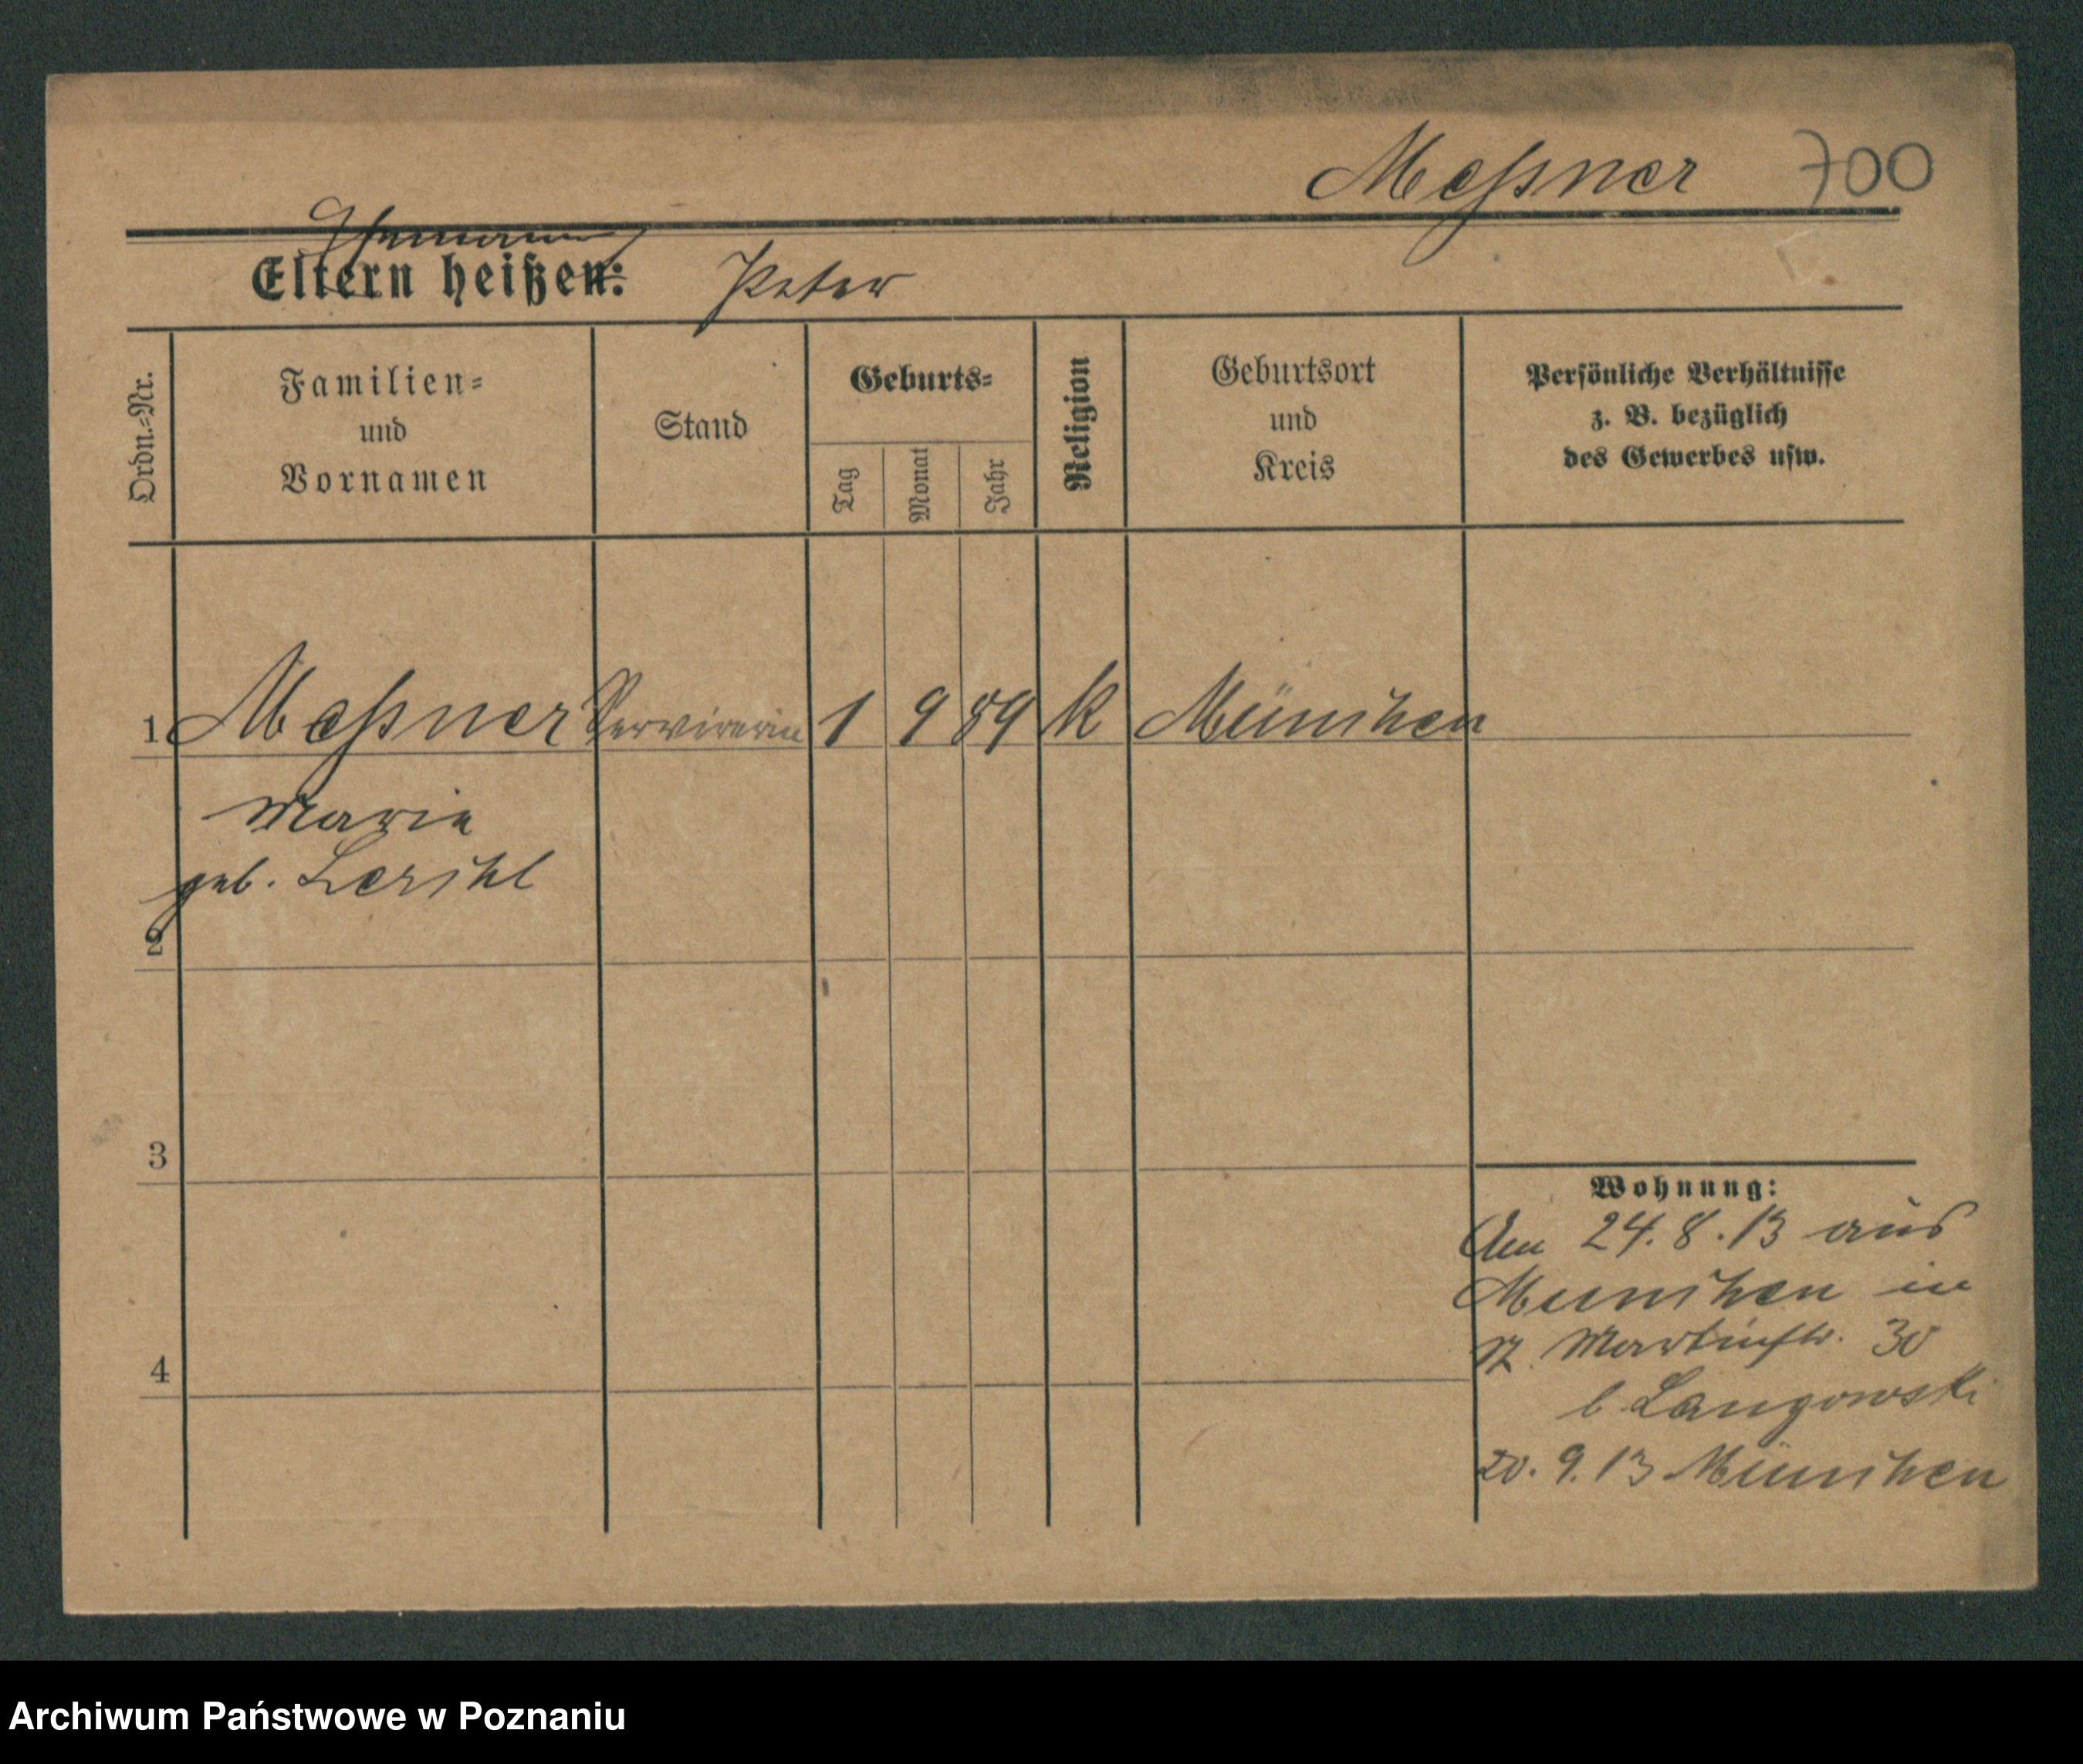 Meßner 700
Ehemann
Eltern heißen: Peter
Ordn.-Nr.
Familien-
und
Vornamen
Stand
Geburts-
Tag
Monat
Jahr
Religion
Geburtsort
und
Kreis
Persönliche Verhältnisse
z. B. bezüglich
des Gewerbes usw.
1 Meßner Serviererin 1 9 89 k München
Marie
geb. Lerchl
2
3
4
Wohnung:
Am 24.8.13 aus
Munchen in
St. Martinstr. 30
b Langowski
20.9.13 München
Archiwum Państwowe w Poznaniu